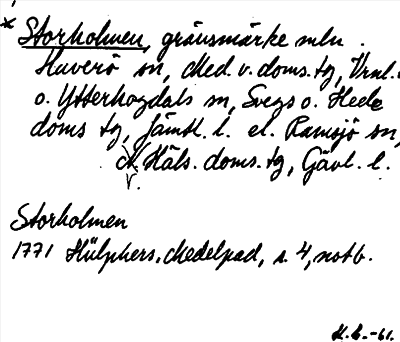 * Storholmen, gränsmärke mln.
Haverö sn, Med. v. doms. tg, Vrnl.
o. Ytterhogdals sn, Svegs o. Hede
doms tg, Jämtl. l. el. Ramsjö sn,
N. Häls. doms. tg, Gävl. l.
V.
Storholmen
1771 Hülphers, Medelpad, s. 4, not b.